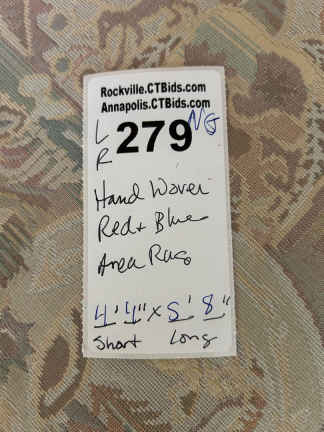 Rockville.CTBids.com
Annapolis.CTBids.com
LR 279 NG
Hand Woven
Red + Blue
Area Rug
4'4" x 5'8"
Short Long